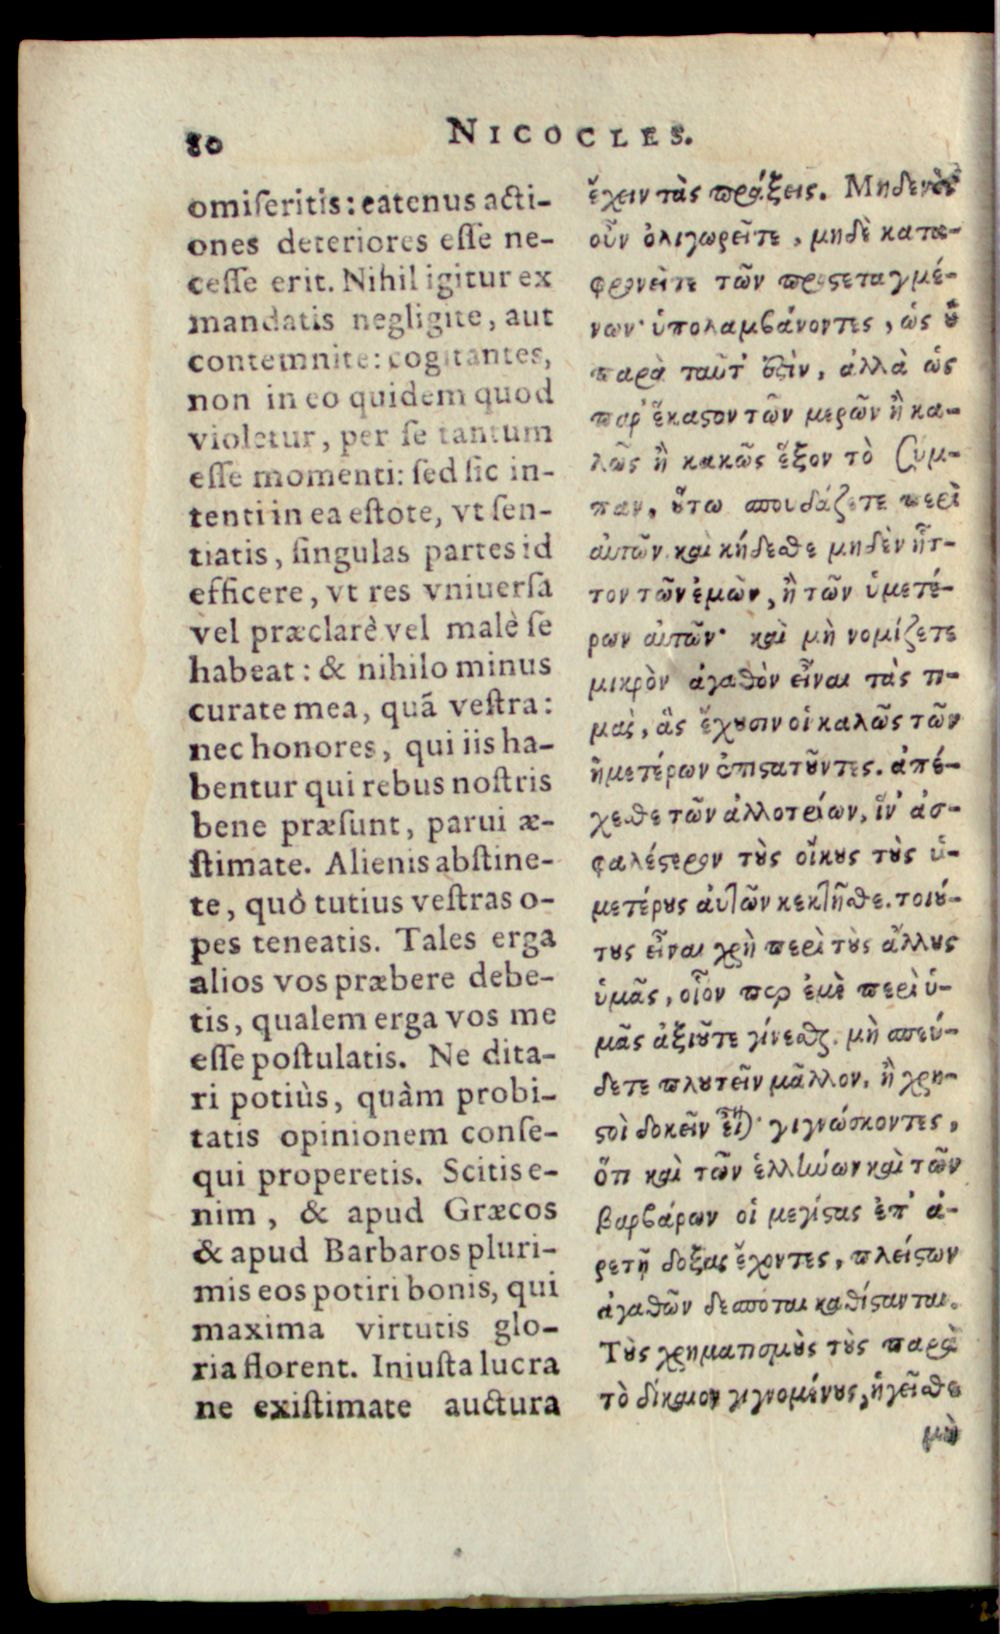 80
NICOCLES.
omiſeritis: eatenus acti-
ones deteriores eſſe ne-
ceſſe erit. Nihil igitur ex
mandatis negligite, aut
contemnite: cogitantes,
non in eo quidem quod
violetur, per ſe tantum
eſſe momenti: ſed ſic in-
tenti in ea eſtote, vt ſen-
tiatis, ſingulas partes id
efficere, vt res vniuerſa
vel præclarè vel malè ſe
habeat: & nihilo minus
curate mea, quã veſtra:
nec honores, qui iis ha-
bentur qui rebus noſtris
bene præſunt, parui æ-
ſtimate. Alienis abſtine-
te, quò tutius veſtras o-
pes teneatis. Tales erga
alios vos præbere debe-
tis, qualem erga vos me
eſſe poſtulatis. Ne dita-
ri potiùs, quàm probi-
tatis opinionem conſe-
qui properetis. Scitis e-
nim, & apud Græcos
& apud Barbaros pluri-
mis eos potiri bonis, qui
maxima virtutis glo-
ria florent. Iniuſta lucra
ne exiſtimate auctura
ἔχειν τὰς πράξεις. Μηδενὸς
οὖν ὀλιγωρεῖτε, μηδὲ κατα-
φρονεῖτε τῶν προςεταγμέ-
νων· ὑπολαμβάνοντες, ὡς ȣ
παρὰ ταῦτ' ὅϛιν, ἀλλὰ ὡς
παρ' ἕκαϛον τῶν μερῶν ἢ κα-
λῶς ἢ κακῶς ἕξον τὸ σύμ-
παν, ȣ̔́τω σπουδάζετε περὶ
αὐτῶν. καὶ κήδεσθε μηδὲν ἧτ-
τον τῶν ἐμῶν, ἢ τῶν ὑμετέ-
ρων αὐτῶν· καὶ μὴ νομίζετε
μικρὸν ἀγαθὸν εἶναι τὰς τι-
μὰς, ἃς ἔχȣσιν οἱ καλῶς τῶν
ἡμετέρων ἐπιϛατȣ͂ντες. ἀπέ-
χεσθε τῶν ἀλλοτρίων, ἵν' ἀσ-
φαλέϛερον τȣ̀ς οἴκȣς τȣ̀ς ὑ-
μετέρȣς αὐτῶν κεκτῆσθε. τοιȣ́-
τȣς εἶναι χρὴ περὶ τȣ̀ς ἄλλȣς
ὑμᾶς, οἷόν περ ἐμὲ περὶ ὑ-
μᾶς ἀξιȣ͂τε γίνεσθαι. μὴ σπεύ-
δετε πλȣτεῖν μᾶλλον, ἢ χρη-
ϛοὶ δοκεῖν εἶναι· γιγνώσκοντες,
ὅτι καὶ τῶν ἑλλήνων καὶ τῶν
βαρβάρων οἱ μεγίϛας ἐπ' ἀ-
ρετῇ δόξας ἔχοντες, πλείϛων
ἀγαθῶν δεσπόται καθίϛανται.
Τȣ̀ς χρηματισμȣ̀ς τȣ̀ς παρὰ
τὸ δίκαιον γιγνομένȣς, ἡγεῖσθε
μὴ